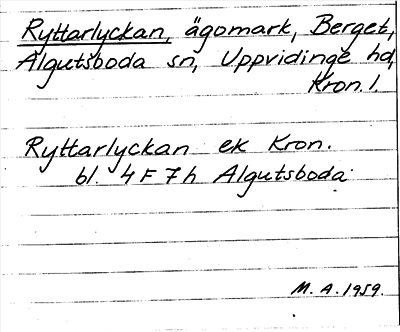 Ryttarlyckan, ägomark, Berget,
Algutsboda sn, Uppvidinge hd,
Kron. l.
Ryttarlyckan ek Kron.
bl. 4 F 7 h Algutsboda
M. A. 1959.